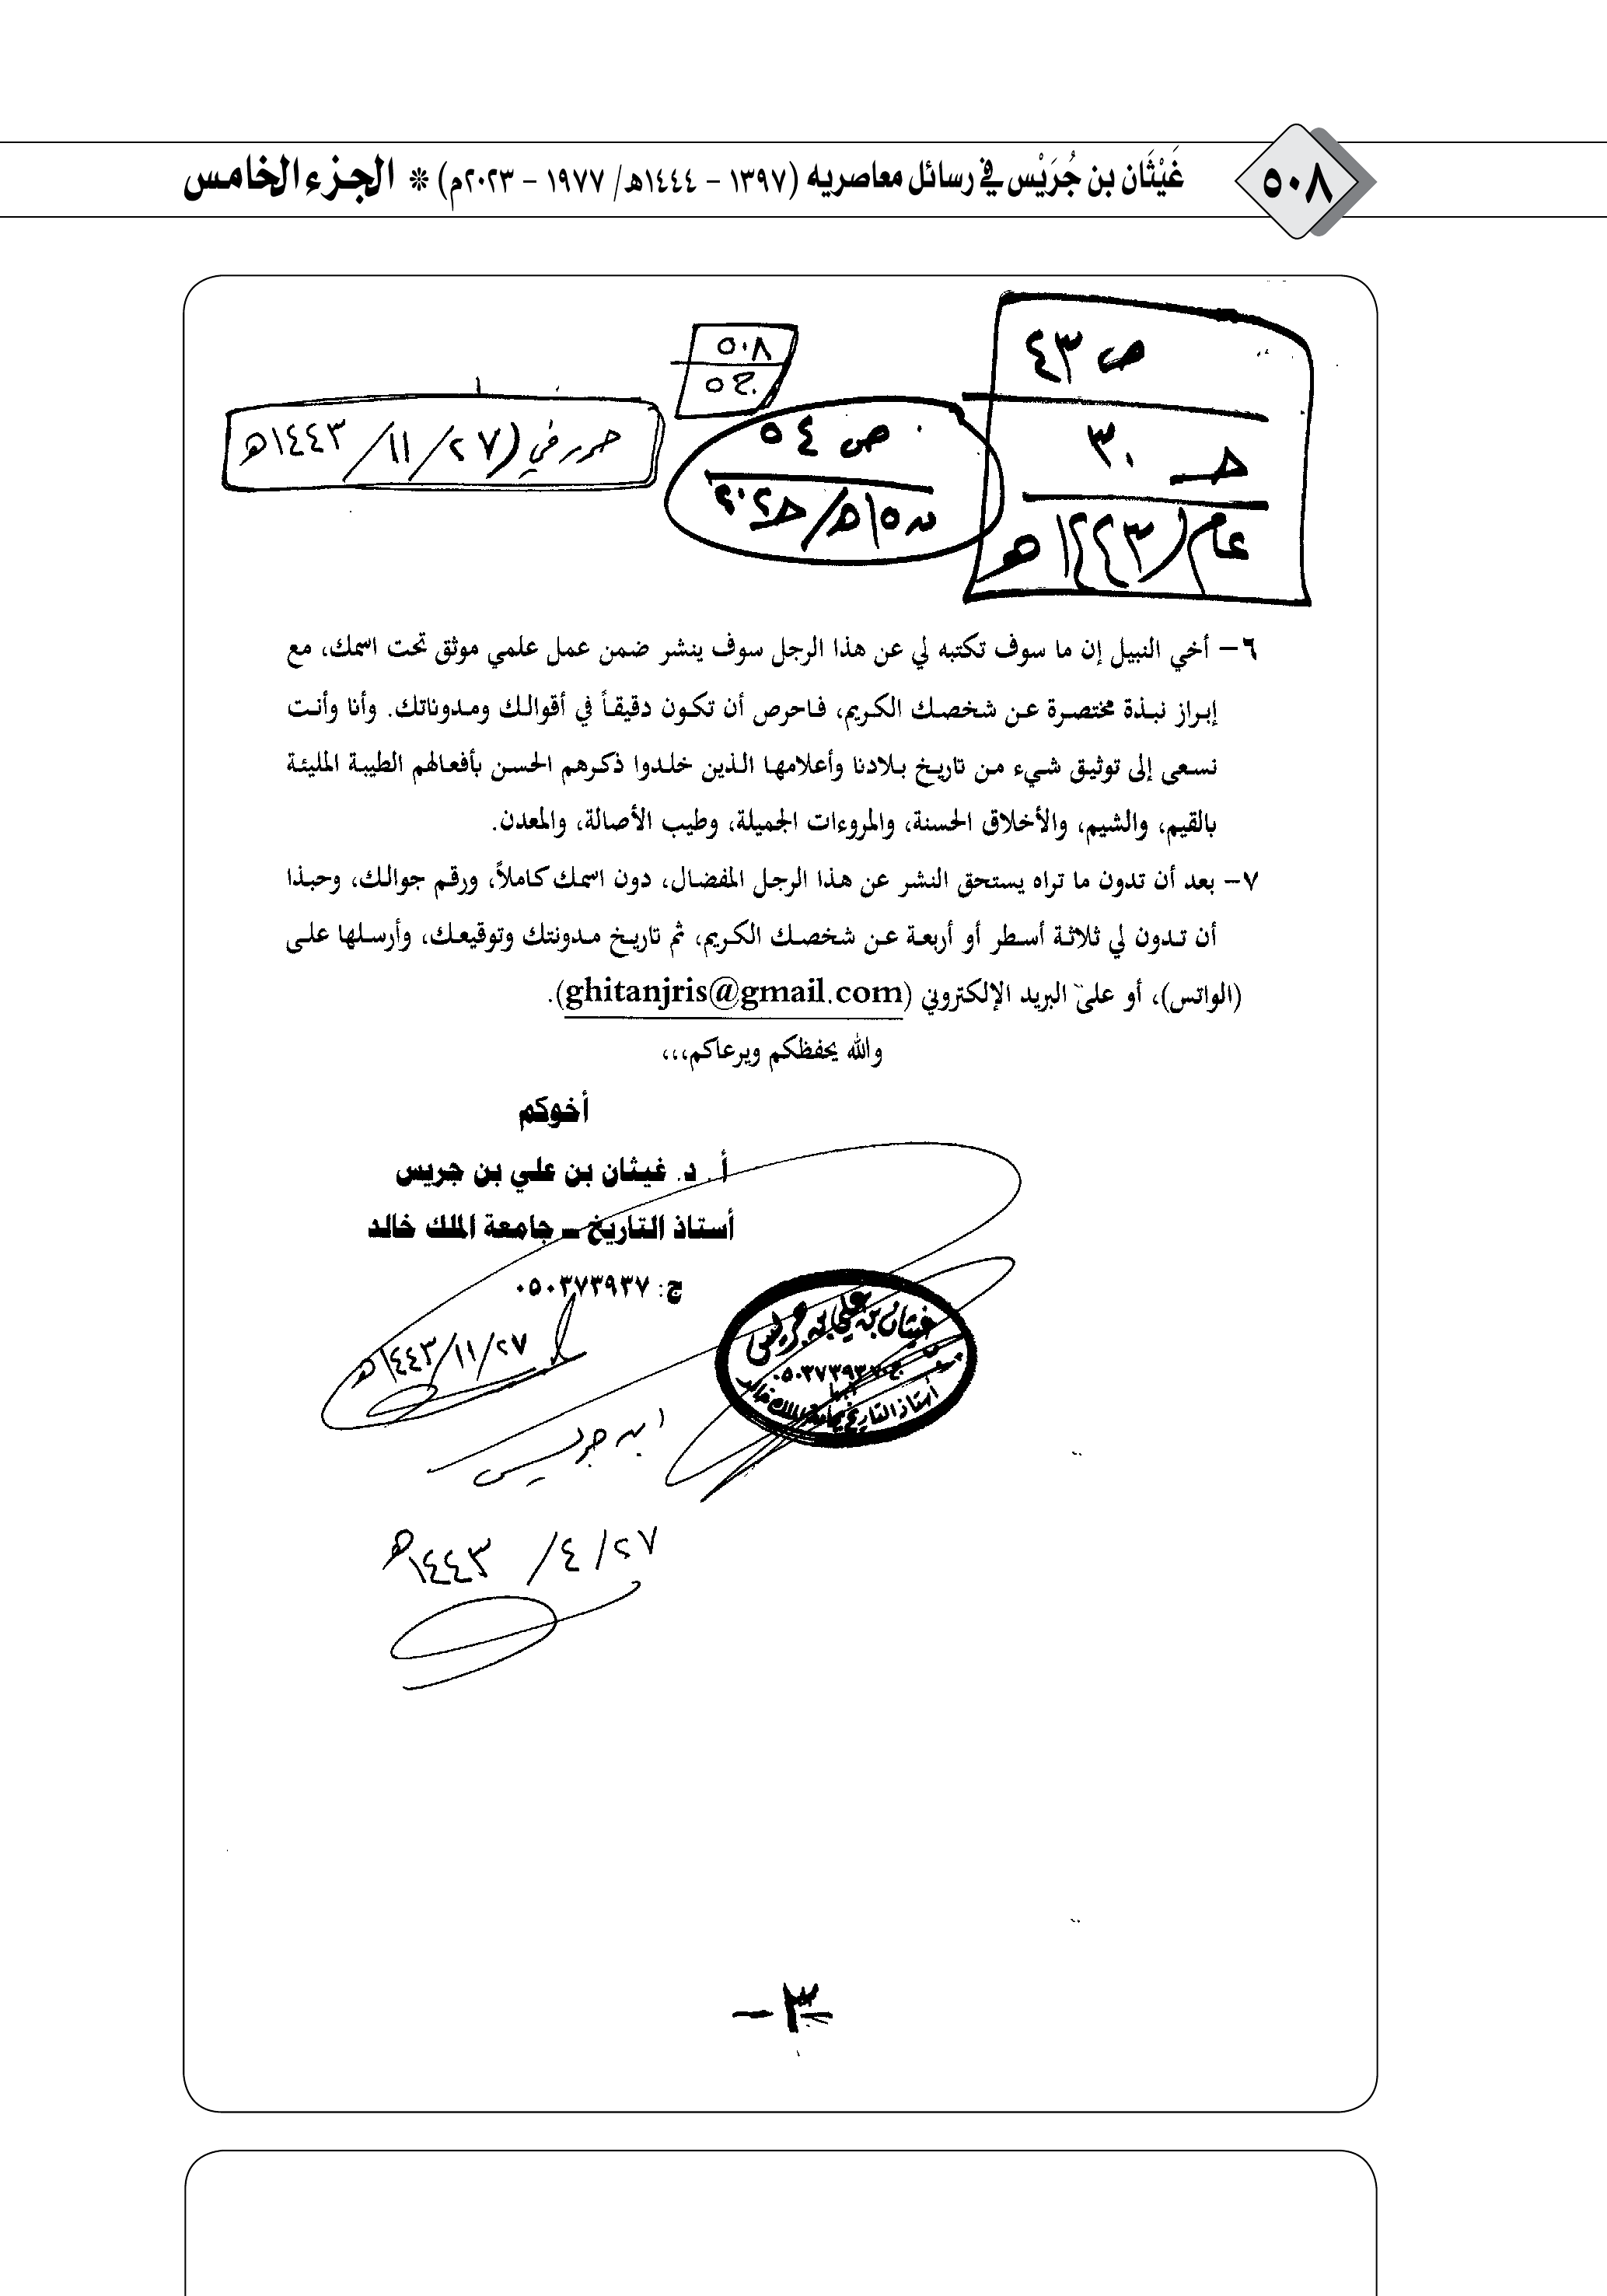 ٥٠٨
غَيْثَان بن جُرَيْس في رسائل معاصريه (١٣٩٧ - ١٤٤٤هـ/ ١٩٧٧ - ٢٠٢٣م) * الجزء الخامس
ص ٤٣
حـ ٣٠
عام ١٤٤٣هـ
٥٠٨
ج ٥
ص ٥٤
حرر في (٢٧/ ١١/ ١٤٤٣هـ
٦- أخي النبيل إن ما سوف تكتبه لي عن هذا الرجل سوف ينشر ضمن عمل علمي موثق تحت اسمك، مع
إبراز نبذة مختصرة عن شخصك الكريم، فاحرص أن تكون دقيقاً في أقوالك ومدوناتك. وأنا وأنت
نسعى إلى توثيق شيء من تاريخ بلادنا وأعلامها الذين خلدوا ذكرهم الحسن بأفعالهم الطيبة المليئة
بالقيم، والشيم، والأخلاق الحسنة، والمروءات الجميلة، وطيب الأصالة، والمعدن.
٧- بعد أن تدون ما تراه يستحق النشر عن هذا الرجل المفضال، دون اسمك كاملاً، ورقم جوالك، وحبذا
أن تدون لي ثلاثة أسطر أو أربعة عن شخصك الكريم، ثم تاريخ مدونتك وتوقيعك، وأرسلها على
(الواتس)، أو على البريد الإلكتروني (ghitanjris@gmail.com).
والله يحفظكم ويرعاكم،،،
أخوكم
أ. د. غيثان بن علي بن جريس
أستاذ التاريخ ـ جامعة الملك خالد
ج: ٠٥٠٣٧٣٩٣٧
٢٧/ ١١/ ١٤٤٣هـ
غيثان بن علي بن جريس
أستاذ التاريخ بجامعة الملك خالد
ابن جريس
٢٧/ ٤/ ١٤٤٣هـ
-٣-